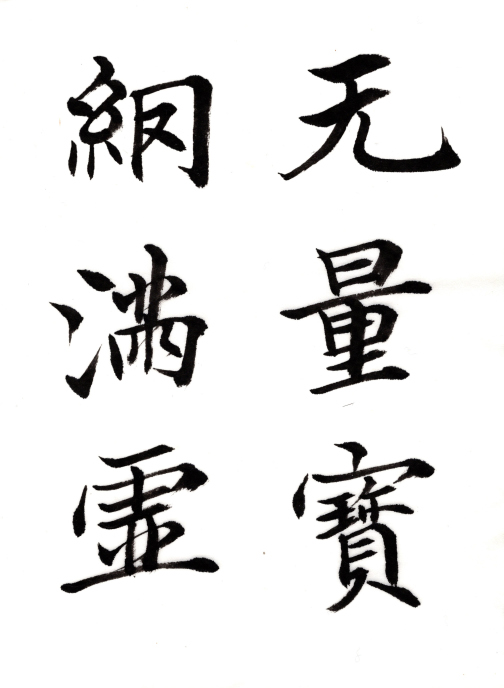 无量寶
網滿虛